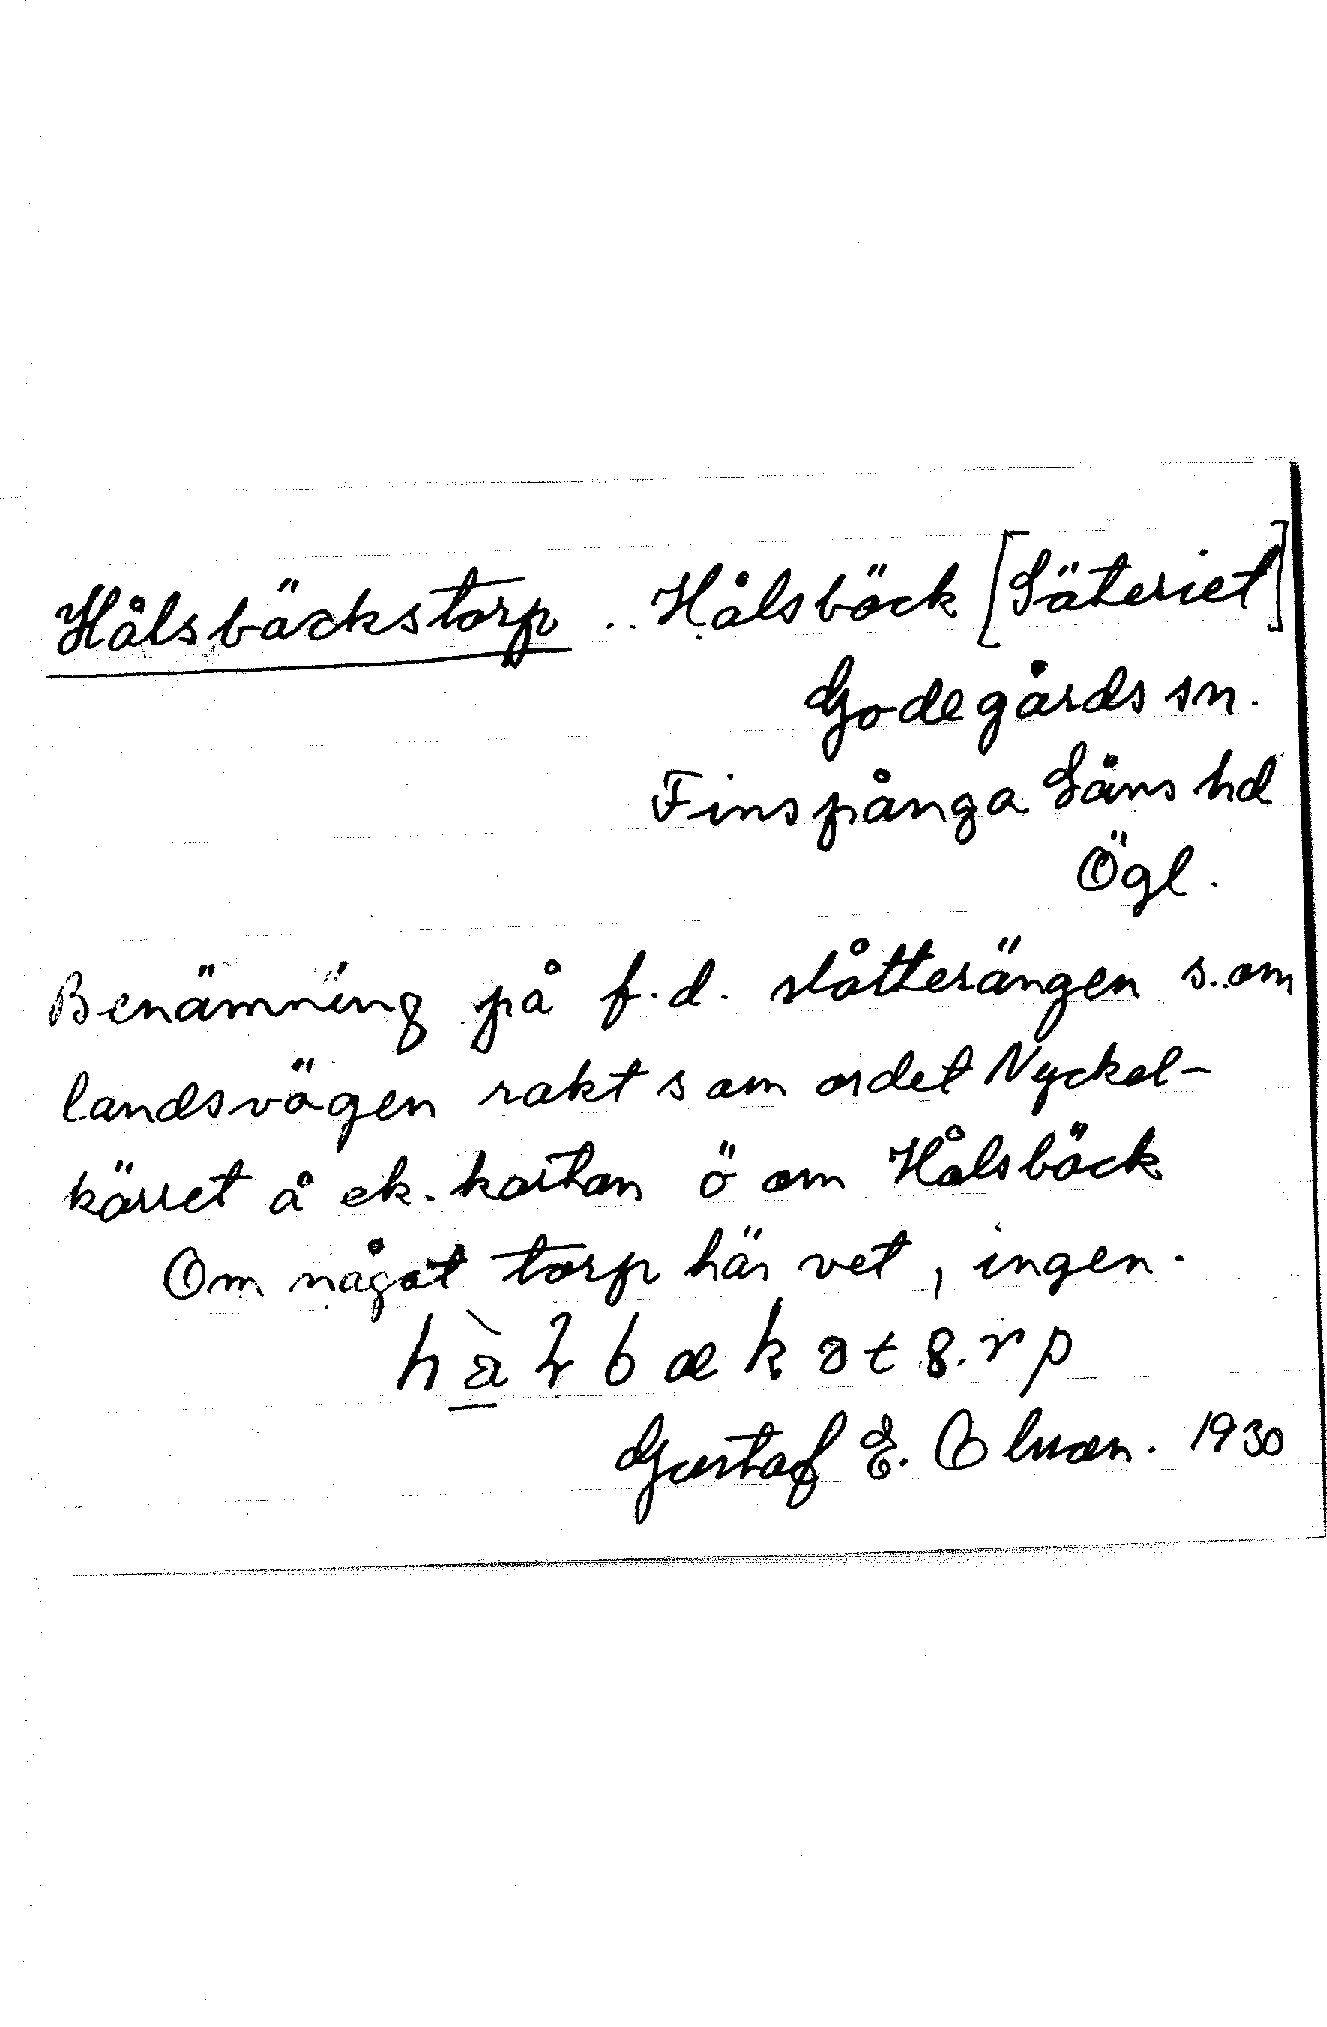 Hålsbäckstorp .. Hålsbäck [Säteriet]
Godegårds sn.
Finspånga Läns hd
Ögl.
Benämning på f.d. slåtterängen s. om
landsvägen rakt s om ordet Nyckel-
kärret å ek. kartan ö om Hålsbäck
Om något torp här vet, ingen.
Gustaf E. 1930